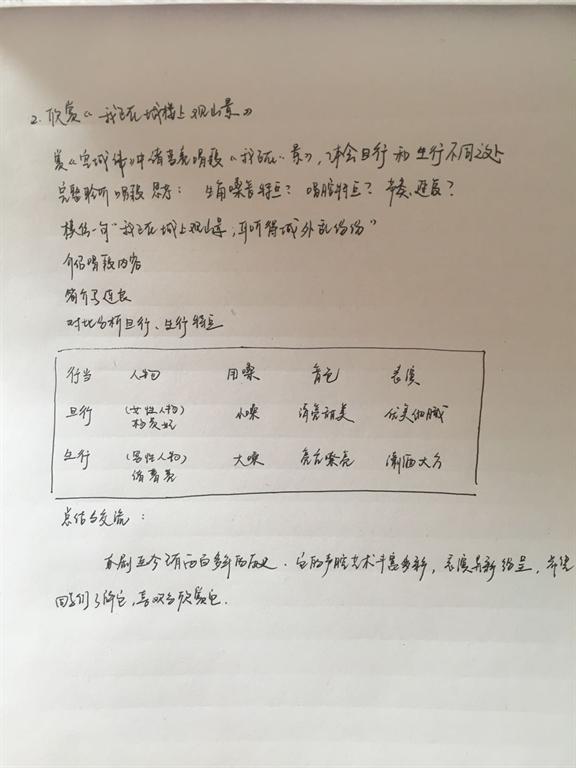 2. 欣赏《我正在城楼上观山景》
赏《空城计》中诸葛亮唱段《我正在…景》，体会旦行和生行不同之处
完整聆听唱段 思考： 生角嗓音特点？ 唱腔特点？ 节奏、速度？
模唱一句“我正在城上观山景，耳听得城外乱纷纷”
介绍唱段内容
简介马连良
对比分析旦行、生行特点
行当 人物 用嗓 音色 表演
旦行 (女性人物) 杨贵妃 小嗓 清亮甜美 优美细腻
生行 (男性人物) 诸葛亮 大嗓 嘹亮 潇洒大方
总结与交流：
京剧至今已有两百多年的历史．它的声腔艺术丰富多彩，表演异彩纷呈，希望
同学们了解它，喜欢与欣赏它．